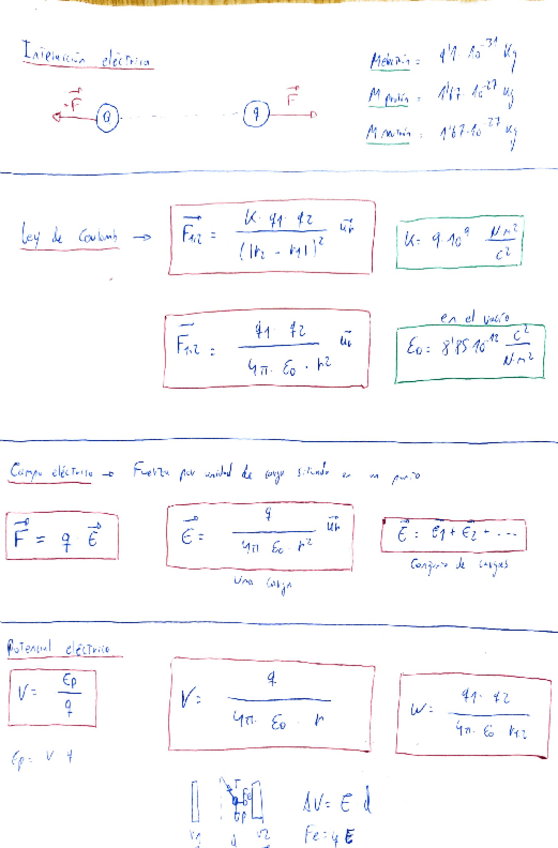 Interacción eléctrica
M electrón = 9'1 · 10⁻³¹ Kg
-F⃗ Q q F⃗
M protón = 1'67 · 10⁻²⁷ Kg
M neutrón = 1'67 · 10⁻²⁷ Kg
Ley de Coulomb → F⃗₁,₂ = K · q1 · q2 / (|r2 - r1|)² u⃗r
K = 9 · 10⁹ N m² / C²
F⃗₁,₂ = q1 · q2 / 4π · ε0 · r² u⃗r
en el vacío
ε0 = 8'85 · 10⁻¹² C² / N · m²
Campo eléctrico → Fuerza por unidad de carga situada en un punto
F⃗ = q E⃗
E⃗ = q / 4π · ε0 · r² u⃗r
E⃗ = E⃗1 + E⃗2 + ···
Una carga
Conjunto de cargas
Potencial eléctrico
V = Ep / q
V = q / 4π · ε0 · r
W = q1 · q2 / 4π · ε0 · r12
Ep = V q
T Fe
V1 d V2
ΔV = E d
Fe = q E